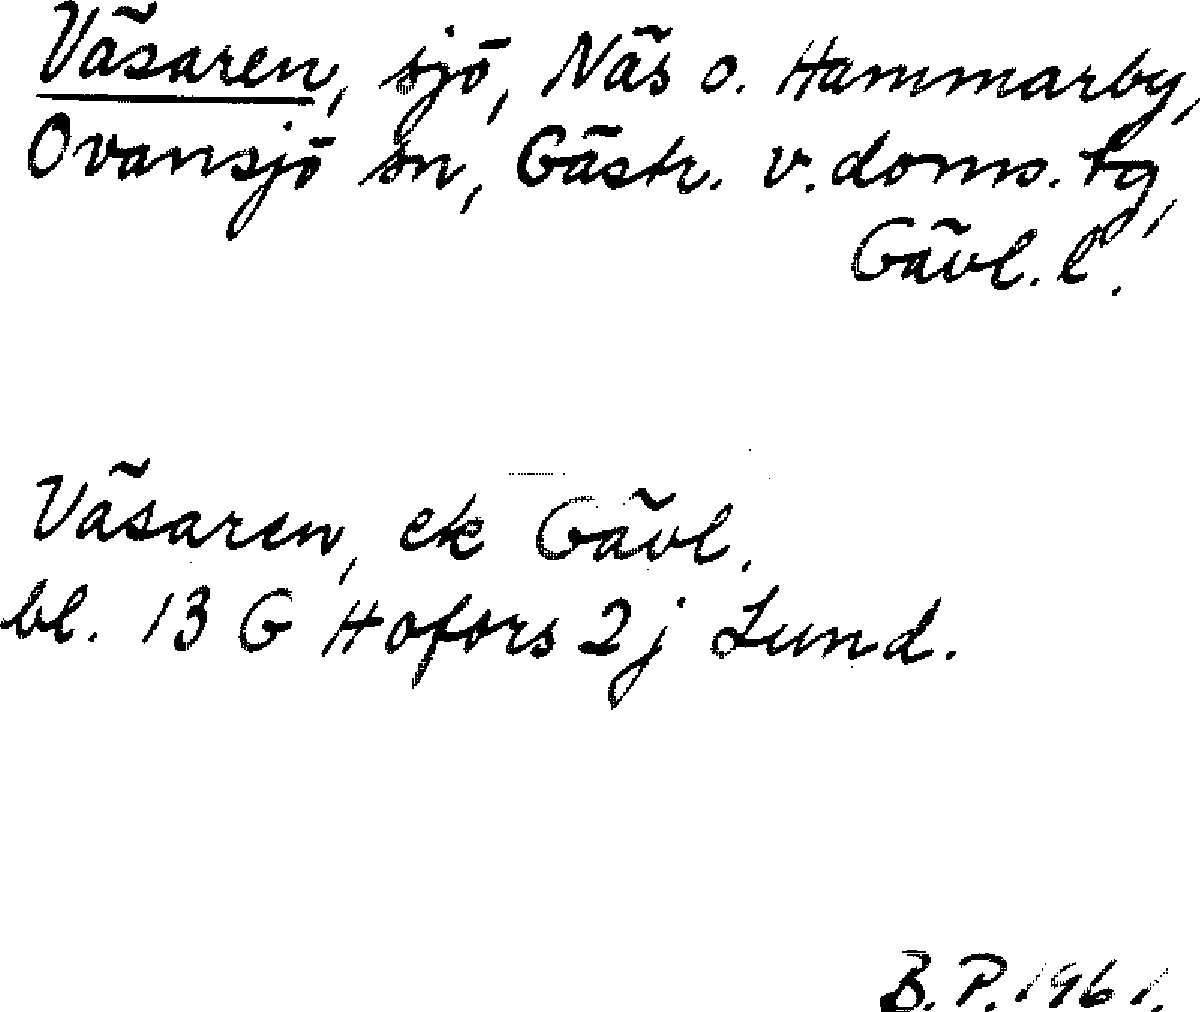 Väsaren, sjö, Näs o. Hammarby,
Ovansjö sn, Gästr. v. doms. tg,
Gävl. l.
Väsaren, ek Gävl.
bl. 13 G Hofors 2 j Lund.
B. P. 1961.